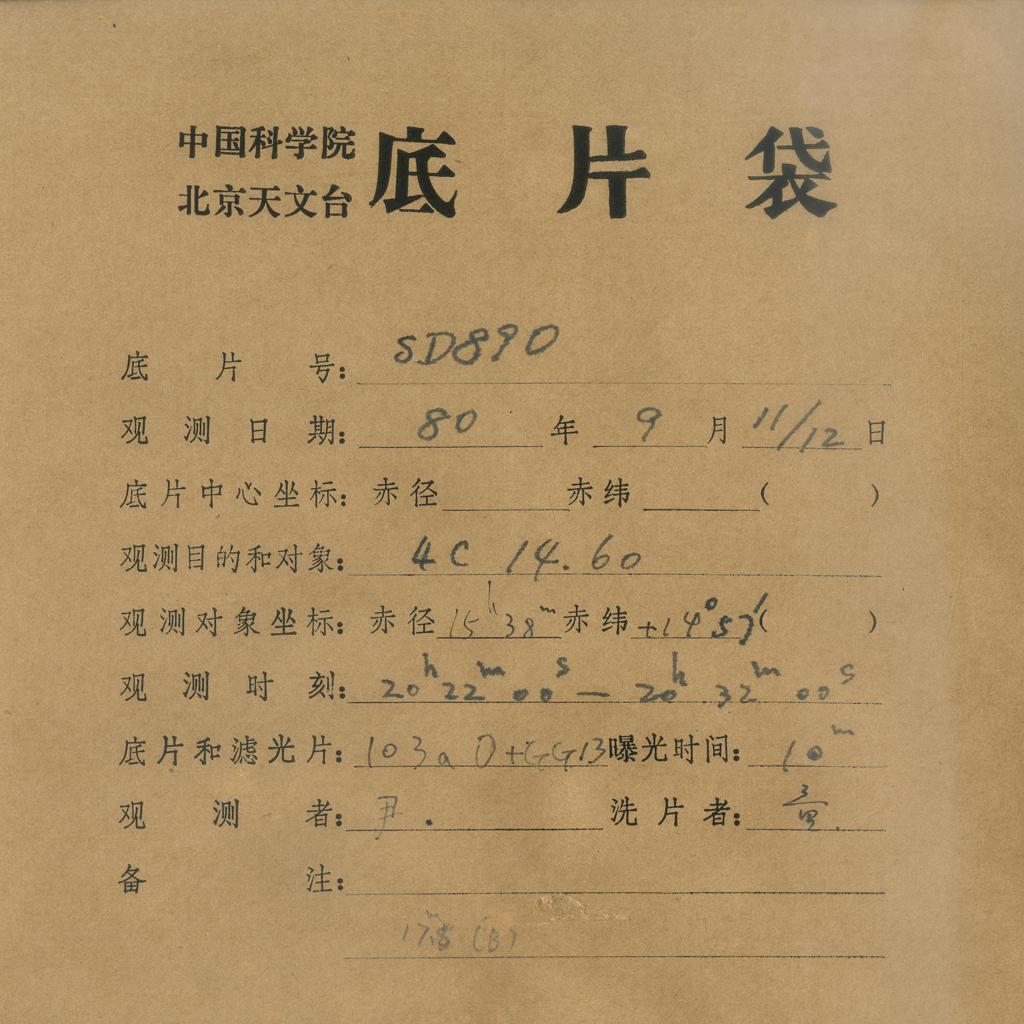 中国科学院
北京天文台
底片袋
底片号：SD890
观测日期：80年9月11/12日
底片中心坐标：赤径 赤纬 （ ）
观测目的和对象：4C 14.60
观测对象坐标：赤径15h38m赤纬+14°57′（ ）
观测时刻：20h22m00s—20h32m00s
底片和滤光片：103aO+GG13曝光时间：10m
观测者：尹. 洗片者：
备注：
(B)